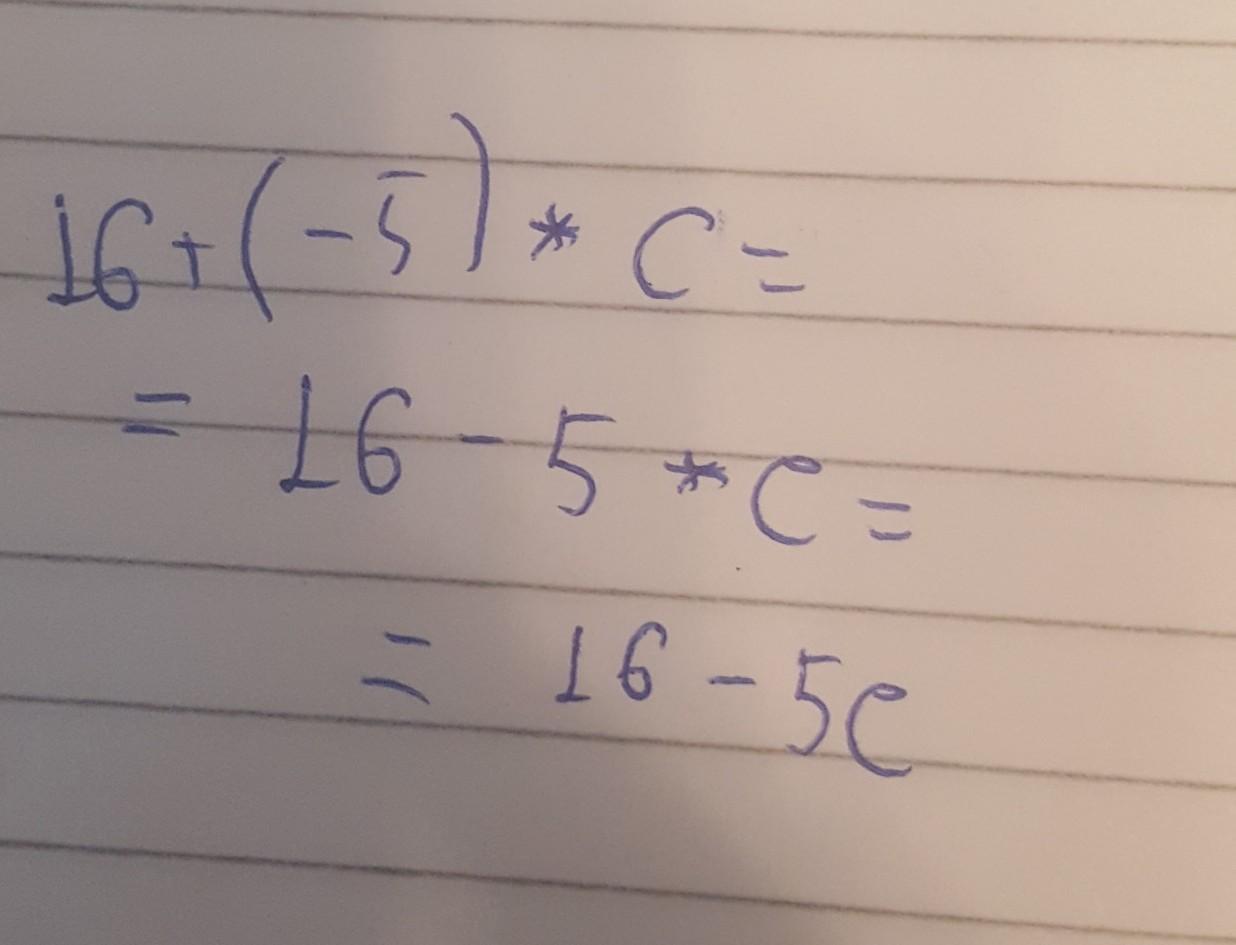 16+(-5)*c=
= 16-5*c=
= 16-5c